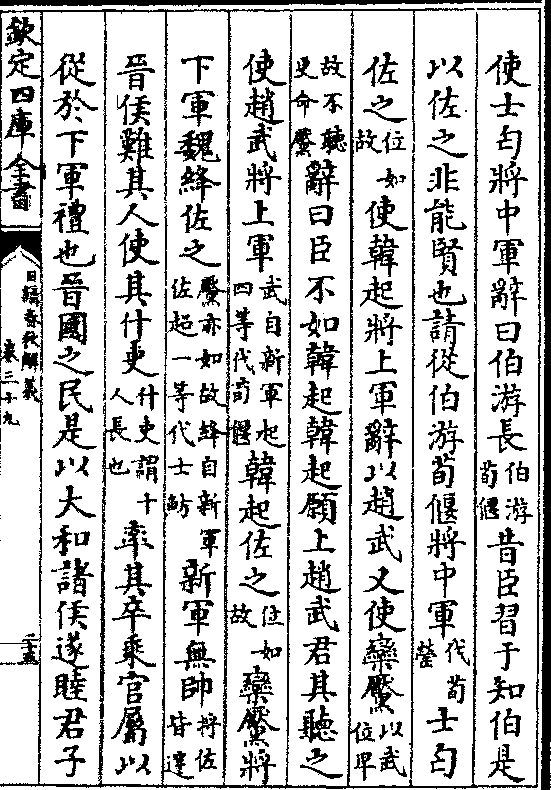 使士匄將中軍辭曰伯游長伯游荀偃昔臣習于知伯是
以佐之非能賢也請從伯游荀偃將中軍代荀罃士匄
佐之位如故使韓起將上軍辭以趙武又使欒黶以武位卑
故不聽更命黶辭曰臣不如韓起韓起願上趙武君其聽之
使趙武將上軍武自新軍超四等代荀偃韓起佐之位如故欒黶將
下軍魏絳佐之黶亦如故絳自新軍佐超一等代士魴新軍無帥將佐皆遷
晉侯難其人使其什吏什吏謂十人長也率其卒乘官屬以
從於下軍禮也晉國之民是以大和諸侯遂睦君子
欽定四庫全書
日講春秋解義
卷三十九